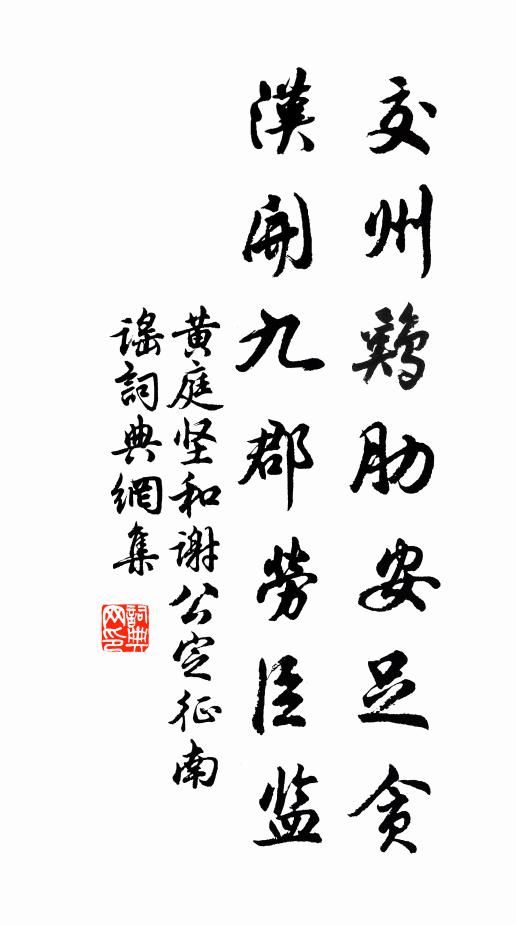 交州鷄肋安足貪
漢開九郡勞臣監
黄庭坚和谢公定征南
谣詞典網集
詞典网印